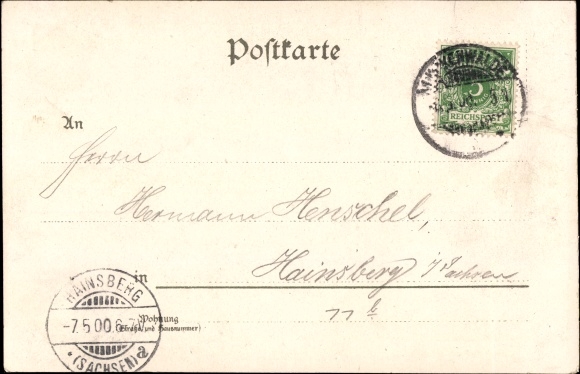 Postkarte
5
REICHSPOST
An
Herrn
Hermann Henschel,
in Hainsberg i/Sachsen
11 b
Wohnung
(Straße und Hausnummer)
HAINSBERG
-7.5.00.6-7
*(SACHSEN) a